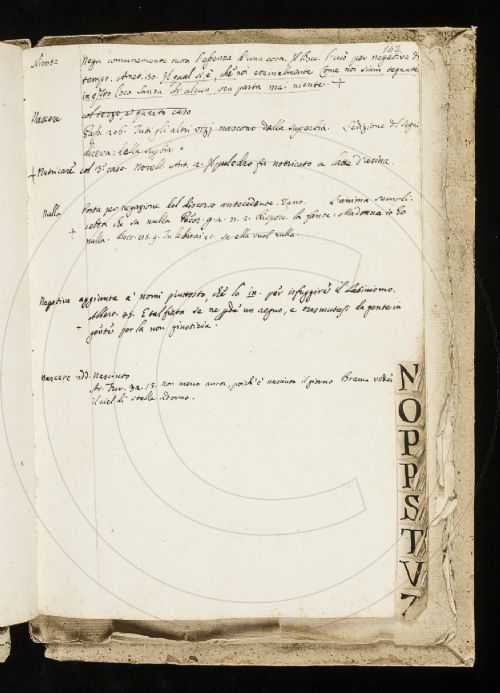 142
Niente Nega comunemente tutta l'essenza d'una cosa. Il Bocc. l'usò per negativa di
tempo. Amet. 30. Il qual si è, che noi eternalmente come noi siam segnate
in questo loco senza di alcun sen parta mai niente. +
Nascere col terzo e quarto caso
206. Tutti gli altri vizj nascono dalla superbia. L'edizione di
diceva: dalla
+ Nutricare col 3° caso. Novell. Ant. 2. Il puledro fu notricato a latte d'asina.
Nulla Posta per negazione del discorso antecedente. L'anima sempli-
cetta che sa nulla g. n. 2. rispose la fante: Madonna io ho
+ nulla. Bocc. se ella vuol nulla.
Negativa aggiunta a' nomi piuttosto, che la in. per isfuggire il latinismo.
Albert. 45. E tal fiata se ne pde un regno, e trasmutasi la gente in
+ gente per la non giustizia.
Nascere add. Nasciuto
Ar. Fur. 32. 13. no: meno ancor, poich'è nasciuto il giorno Brama veder
il ciel di stelle adorno.
N
O
P
P
S
T
V
Z